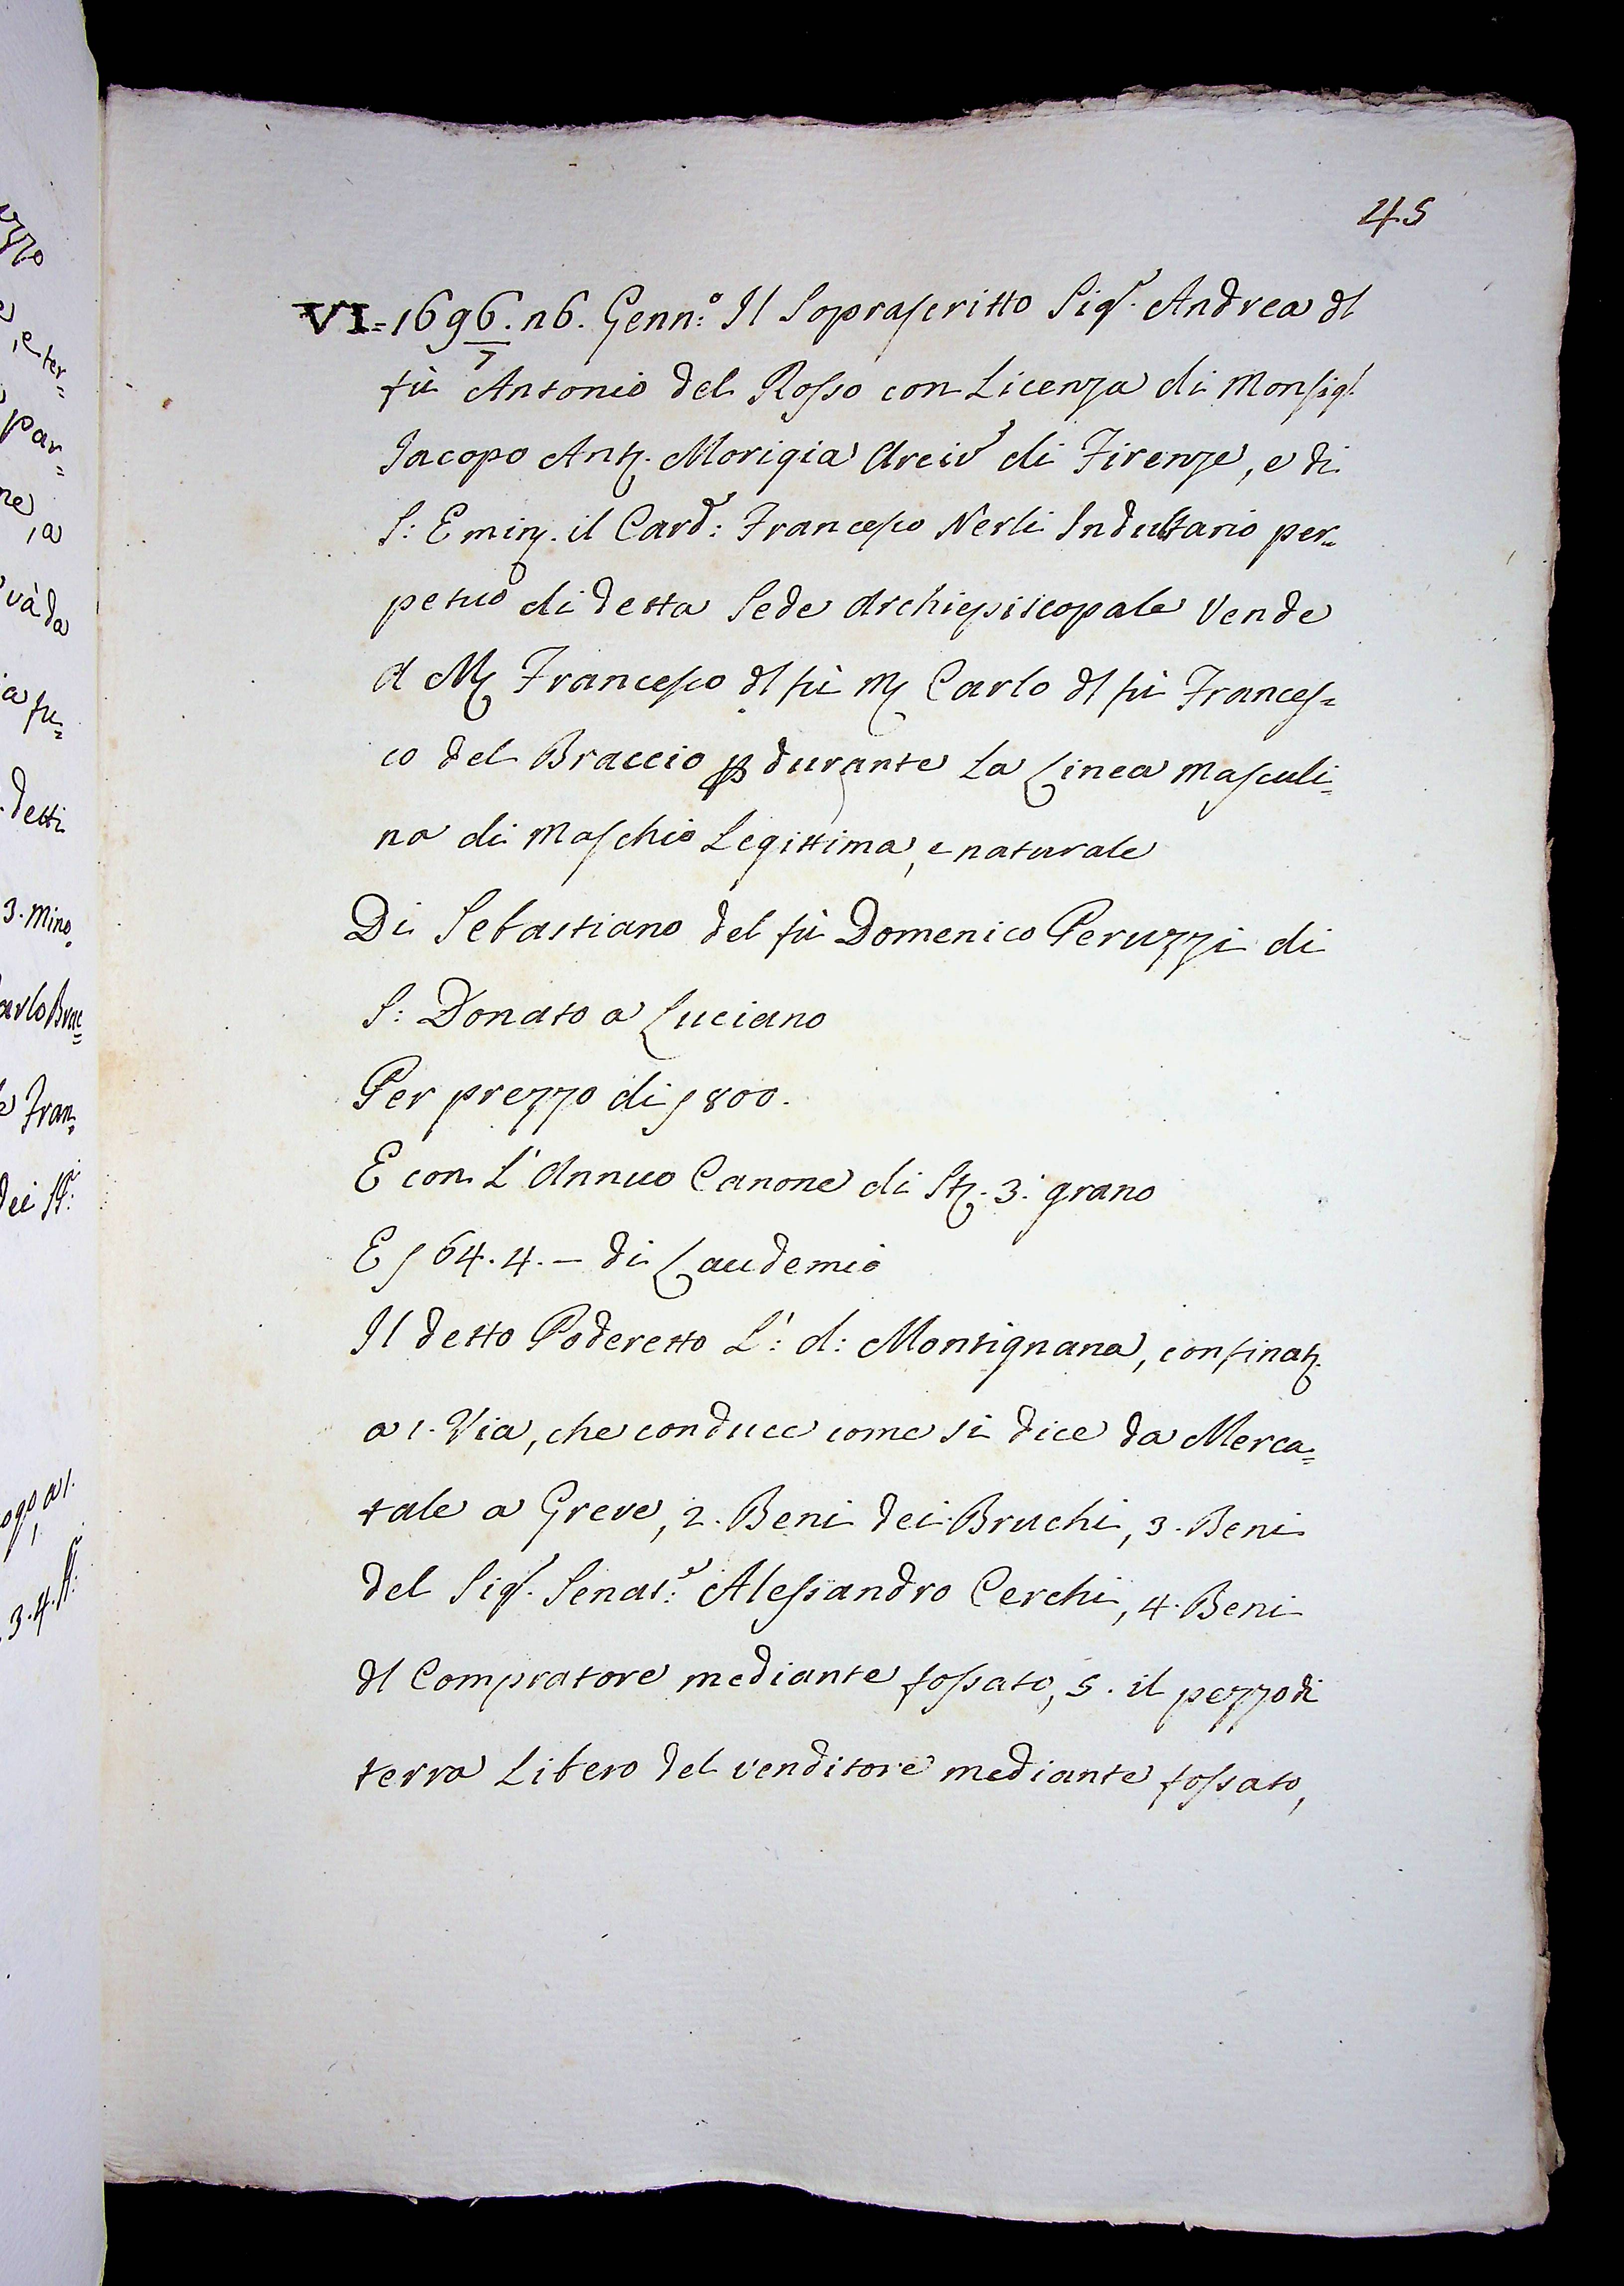 45
VI=1696/7. n6. Genn:º Il Soprascritto Sigr. Andrea dl
fù Antonio del Rosso con Licenza di Monsigr.
Jacopo Antº. Morigia Arciv.º di Firenze, e di
S: Eminª. il Card: Francesco Nerli Indultario per=
petuo di detta Sede Archiepiscopale Vende
A Mº Francesco dl fù Mº Carlo dl fù Frances=
co del Braccio p durante La Linea Masculi=
na di Maschio Legittima, e naturale
Di Sebastiano del fù Domenico Peruzzi di
S: Donato a Luciano
Per prezzo di ∫ 800.
E con L'Annuo Canone di Stª. 3. grano
E ∫ 64. 4. — di Laudemio
Il detto Poderetto L: d: Montignana, confinatº.
a 1. Via, che conduce come si dice da Merca=
tale a Greve, 2. Beni dei Bruchi, 3. Beni
del Sigr. Senat:e Alessandro Cerchi, 4. Beni
dl Compratore mediante fossato, 5. il pezzo di
terra Libero del venditore mediante fossato,
, e ter=
par=
ne
, a
và da
a fu=
detti
3. Mino
arlo Brac=
e Fran=
dei
ogo, a 1.
3. 4.